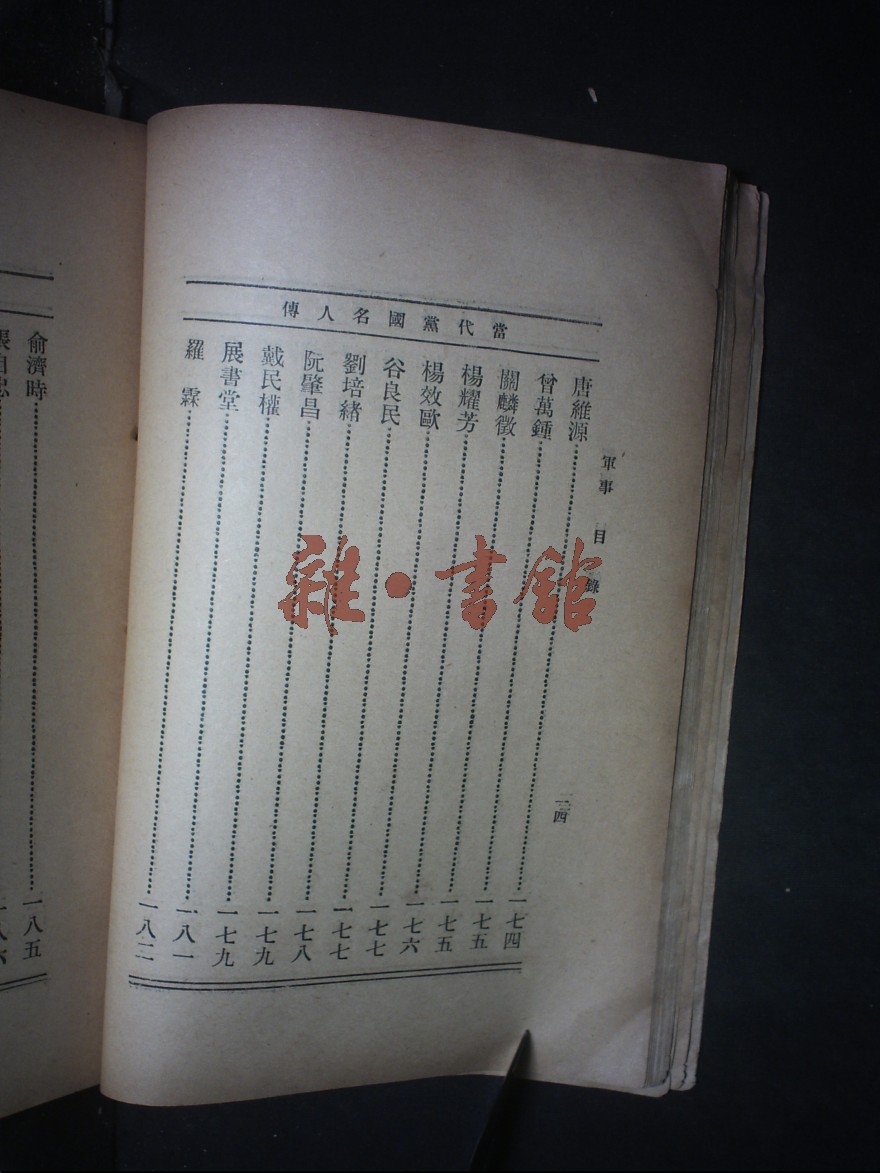 當代黨國名人傳
軍事 目錄
唐維源……一七四
曾萬鍾……一七五
關麟徵……一七五
楊耀芳……一七六
楊效歐……一七七
谷良民……一七七
劉培緒……一七八
阮肇昌……一七九
戴民權……一七九
展書堂……一八一
羅霖……一八二
俞濟時……一八五
雜·書館